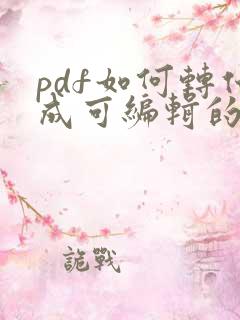 pdf如何轉化
成可編輯的
詭戰